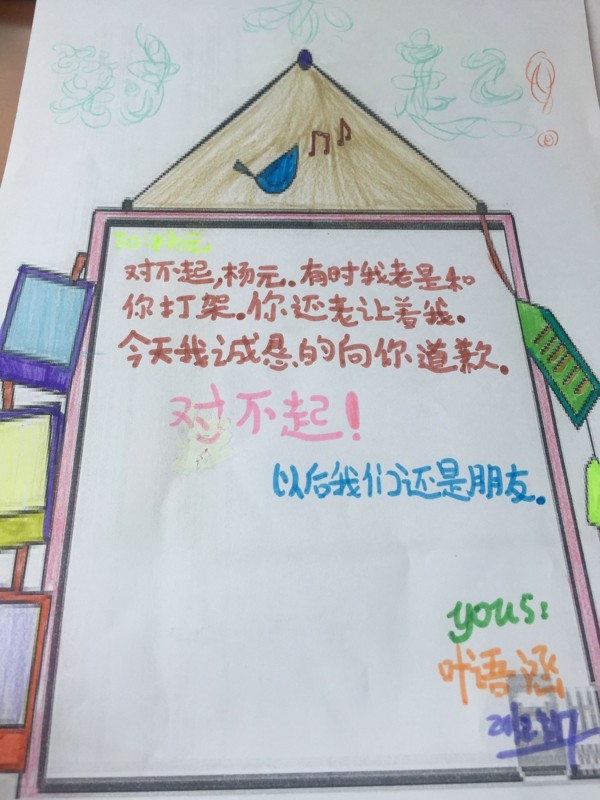 对不起!
To:杨元
对不起,杨元。有时我老是和
你打架。你还老让着我。
今天我诚恳的向你道歉。
对不起!
以后我们还是朋友。
yous:
叶语涵